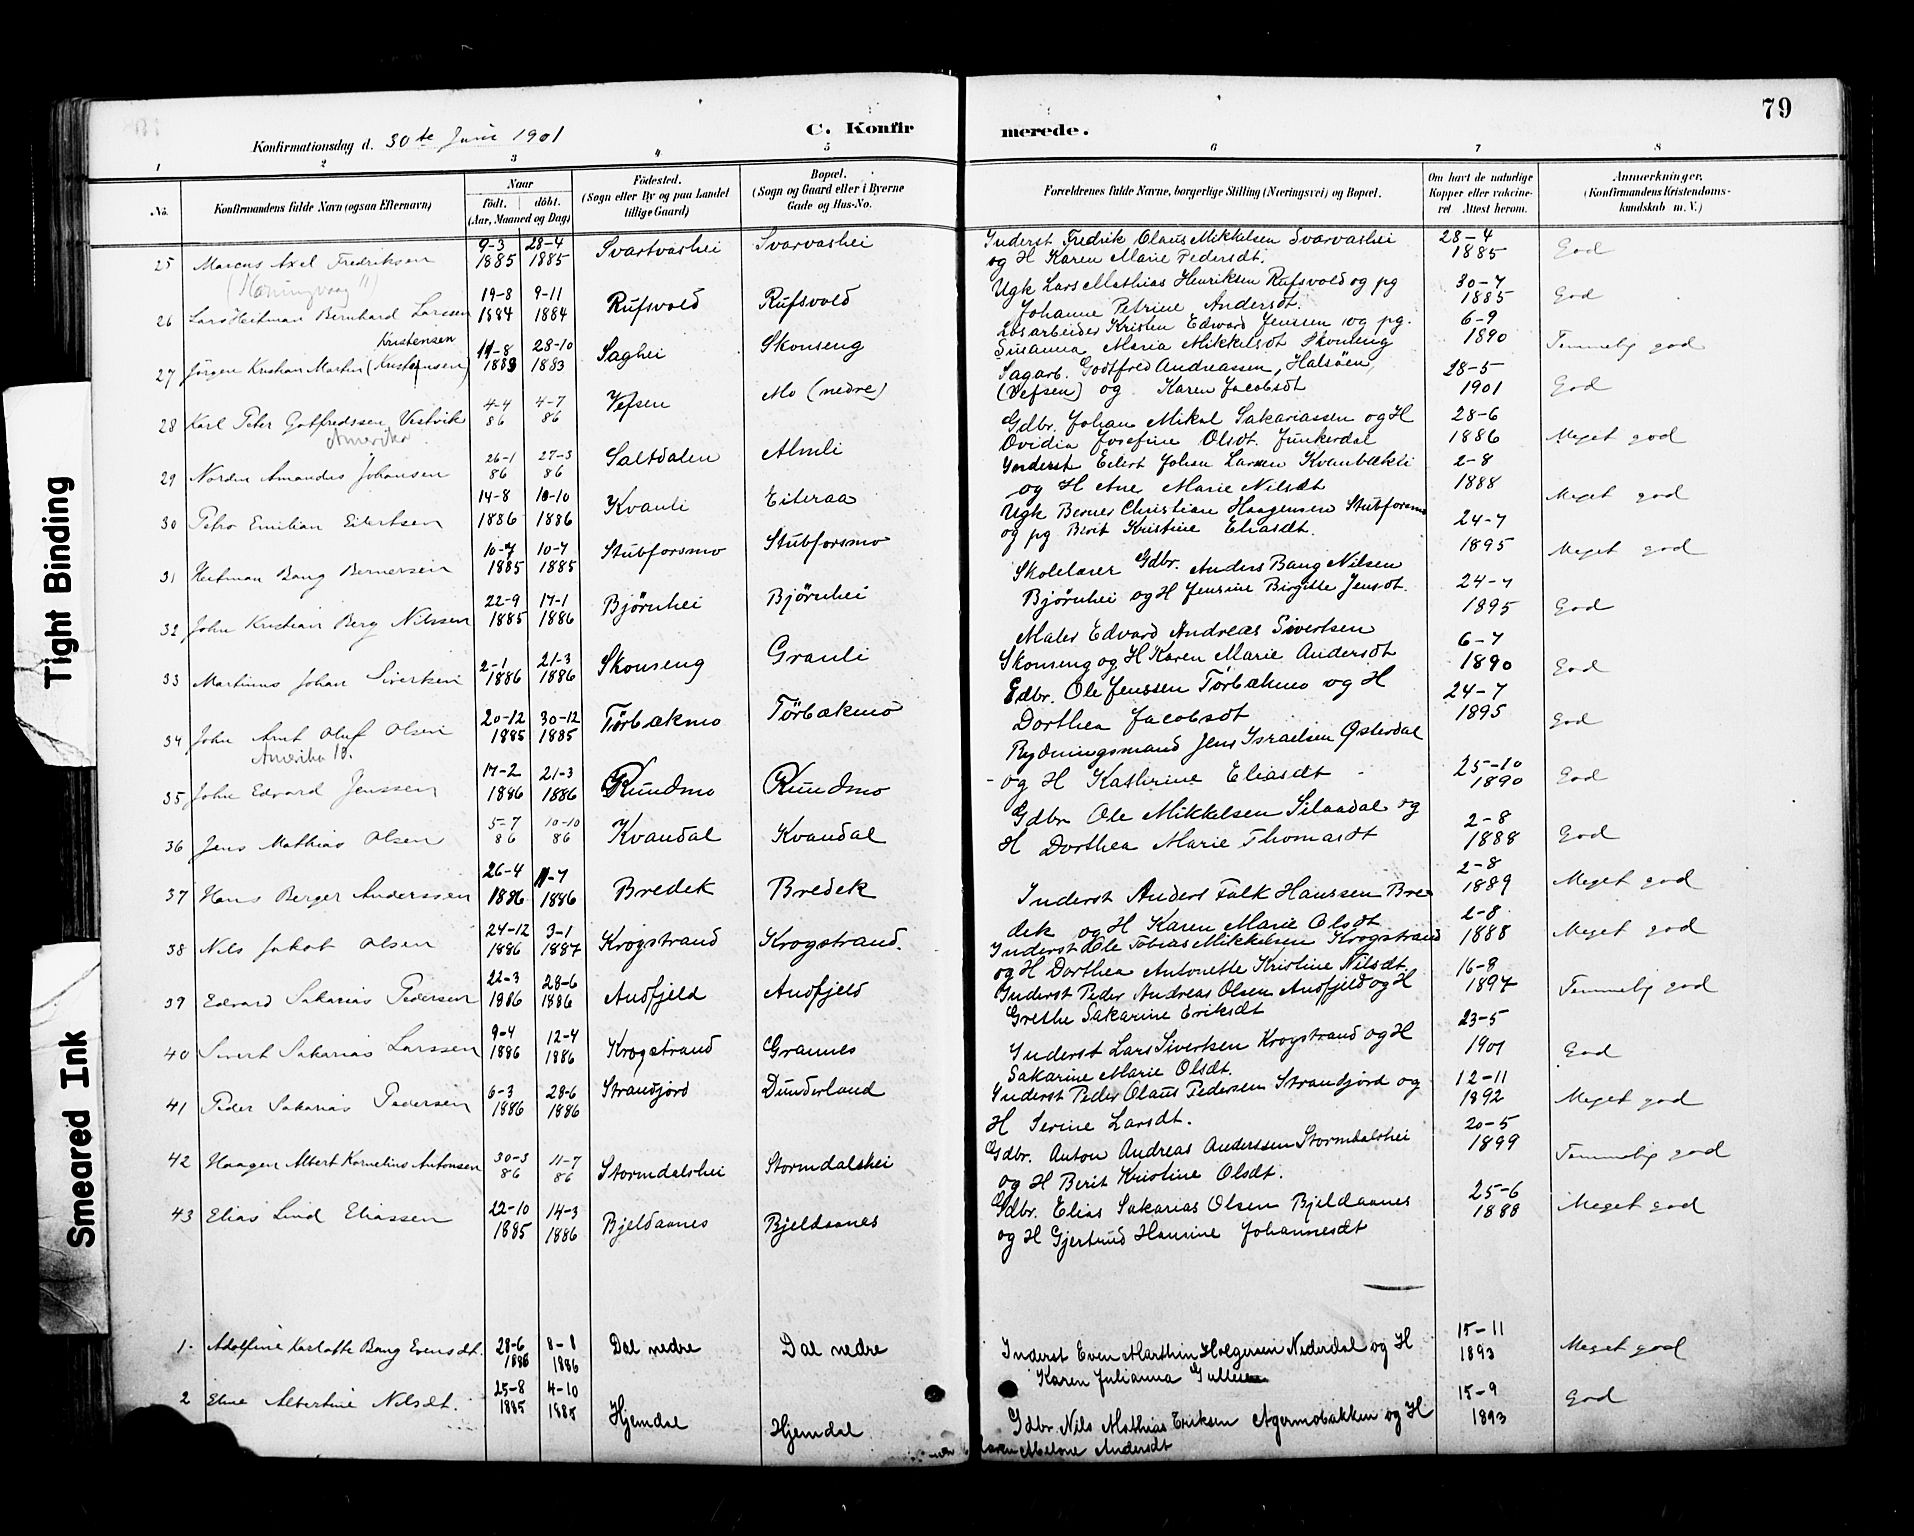 79
Konfirmationsdag d. 30te Juni 1901
C. Konfirmerede.
1 2 3 4 5 6 7 8
No.
Konfirmandens fulde Navn (ogsaa Efternavn)
Naar
født. døbt.
(Aar, Maaned og Dag)
Födested.
(Sogn eller By og paa Landet
tillige Gaard)
Bopæl.
(Sogn og Gaard eller i Byerne
Gade og Hus-No.
Forældrenes fulde Navne, borgerlige Stilling (Næringsvei) og Bopæl.
Om havt de naturlige
Kopper eller vakcine-
ret Attest herom.
Anmærkninger,
(Konfirmandens Kristendoms-
kundskab m. V.)
25 Marcus Axel Fredriksen 9-3 1885 28-4 1885 Svartvashei Svarvashei
Inderst Fredrik Claus Mikkelsen Svarvashei
og H Karen Marie Pedersdt. 28-4 1885 God
26 Lars Heitman Bernhard Larssen 19-8 1884 9-11 1884 Rufsvold Rufsvold
Ugk Lars Mathias Henriksen Rufsvold og pg
Johanne Petrine Andersdt. 30-7 1885 God
Kristensen
27 Jörgen Kristian Martin (Kristensen) 11-8 1883 28-10 1883 Saghei Skonseng
Løsarbeider Kristen Edward Jenssen og pg.
Susanna Maria Mikkelsdt Skonseng 6-9 1890 Temmelig god
28 Karl Peter Gotfredssen Vestvik 4-4 86 4-7 86 Vefsen Mo (nedre)
Amerika
Sagarb. Godtfred Andreassen, Halsöen,
(Vefsen) og Karen Jacobsdt 28-5 1901 God
29 Nordin Amandus Johansen 26-1 86 27-3 86 Saltdalen Almli
Gdbr. Johan Mikal Sakariassen og H
Ovidia Josefine Olsdt. Junkerdal 28-6 1886 Meget god
30 Petro Emilian Eilertsen 14-8 1886 10-10 1886 Kvanli Eiteraa
Inderst Eilert Johan Larsen Kvanbækli
og H Ane Marie Nilsdt 2-8 1888 Meget god
31 Heitman Bang Bernersen 10-7 1885 10-7 1885 Stubforsmo Stubforsmo
Ugk Berner Christian Haagensen Stubforsmo
og pg Berit Kristine Eliasdt. 24-7 1895 Meget god
32 John Kristian Berg Nilssen 22-9 1885 17-1 1886 Bjørnhei Bjørnhei
Skolelærer Gdbr. Anders Bang Nilsen
Bjørnhei og H Jensine Birgitte Jensdt. 24-7 1895 God
33 Martinus Johan Sivertsen 2-1 1886 21-3 1886 Skonseng Granli
Maler Edvard Andreas Sivertsen
Skonseng og H Karen Marie Andersdt 6-7 1890 God
34 John Arnt Oluf Olsen 20-12 1885 30-12 1885 Törbækmo Törbækmo
Amerika 10.
Gdbr. Ole Jenssen Törbækmo og H
Dorthea Jacobsdt 24-7 1895 God
35 John Edvard Jenssen 17-2 1886 21-3 1886 Rundmo Rundmo
Rydningsmand Jens Israelsen Østerdal
og H Kathrine Eliasdt 25-10 1890 God
36 Jens Mathias Olsen 5-7 86 10-10 86 Kvandal Kvandal
Gdbr Ole Mikkelsen Silaadal og
H Dorthea Marie Thomasdt 2-8 1888 God
37 Hans Berger Anderssen 26-4 1886 11-7 1886 Bredek Bredek
Inderst Anders Falk Hanssen Bre
dek og H Karen Marie Olsdt 2-8 1889 Meget god
38 Nils Jakob Olsen 24-12 1886 3-1 1887 Krogstrand Krogstrand.
Inderst Ole Tobias Mikkelsen Krogstrand
og H Dorthea Antonette Kristine Nilsdt 2-8 1888 Meget god
39 Edvard Sakarias Pedersen 22-3 1886 28-6 1886 Andfjeld Andfjeld
Inderst Peder Andreas Olsen Andfjeld og H
Grethe Sakarine Eriksdt 16-8 1897 Temmelig god
40 Sivert Sakarias Larssen 9-4 1886 12-4 1886 Krogstrand Grannes
Inderst Lars Sivertsen Krogstrand og H
Sakarine Marie Olsdt. 23-5 1901 God
41 Peder Sakarias Pedersen 6-3 1886 28-6 1886 Strandjord Dunderland
Inderst Peder Olaus Pedersen Strandjord og
H Serine Larsdt. 12-11 1892 Meget god
42 Haagen Albert Kornelius Antonsen 30-3 86 11-7 86 Stormdalshei Stormdalshei
Gdbr. Anton Andreas Anderssen Stormdalshei
og H Berit Kristine Olsdt. 20-5 1899 Temmelig god
43 Elias Lind Eliassen 22-10 1885 14-3 1886 Bjeldaanes Bjeldaanes
Gdbr. Elias Sakarias Olsen Bjeldaanes
og H Gjertrud Hansine Johannesdt 25-6 1888 Meget god
1. Adolfine Karlotte Bang Evensdt. 28-6 1886 8-8 1886 Dal nedre Dal nedre
Inderst Even Marthin Holgersen Nederdal og H
Karen Julianna 15-11 1893 Meget god
2 Eline Albertine Nilsdt. 25-8 1885 4-10 1885 Hjemdal Hjemdal
Gdbr Nils Mathias Eriksen Agermobakken og H
Maren Malene Andersdt 15-9 1893 God
Tight Binding
Smeared Ink